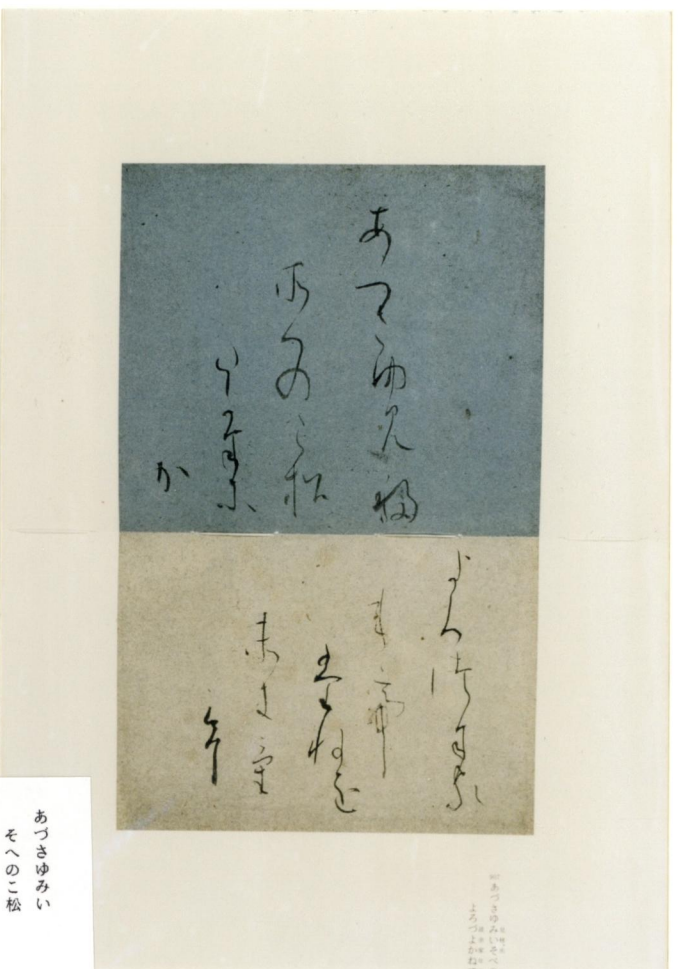 あつさゆみい
そへのこ松
たかよに
か
よろつよを
かねて
たねを
まきけ
む
あづさゆみい
そへのこ松
あづさゆみいそべ
よろづよかね